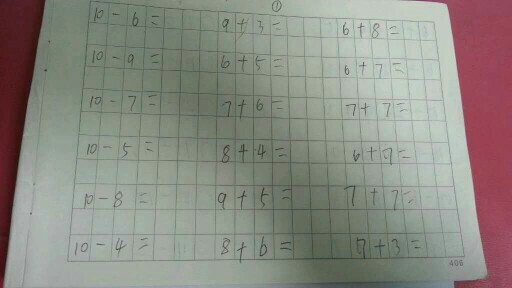 ①
10 - 6 = 9 + 3 = 6 + 8 =
10 - 9 = 6 + 5 = 6 + 7 =
10 - 7 = 7 + 6 = 7 + 7 =
10 - 5 = 8 + 4 = 6 + 7 =
10 - 8 = 9 + 5 = 7 + 7 =
10 - 4 = 8 + 6 = 7 + 3 =
406